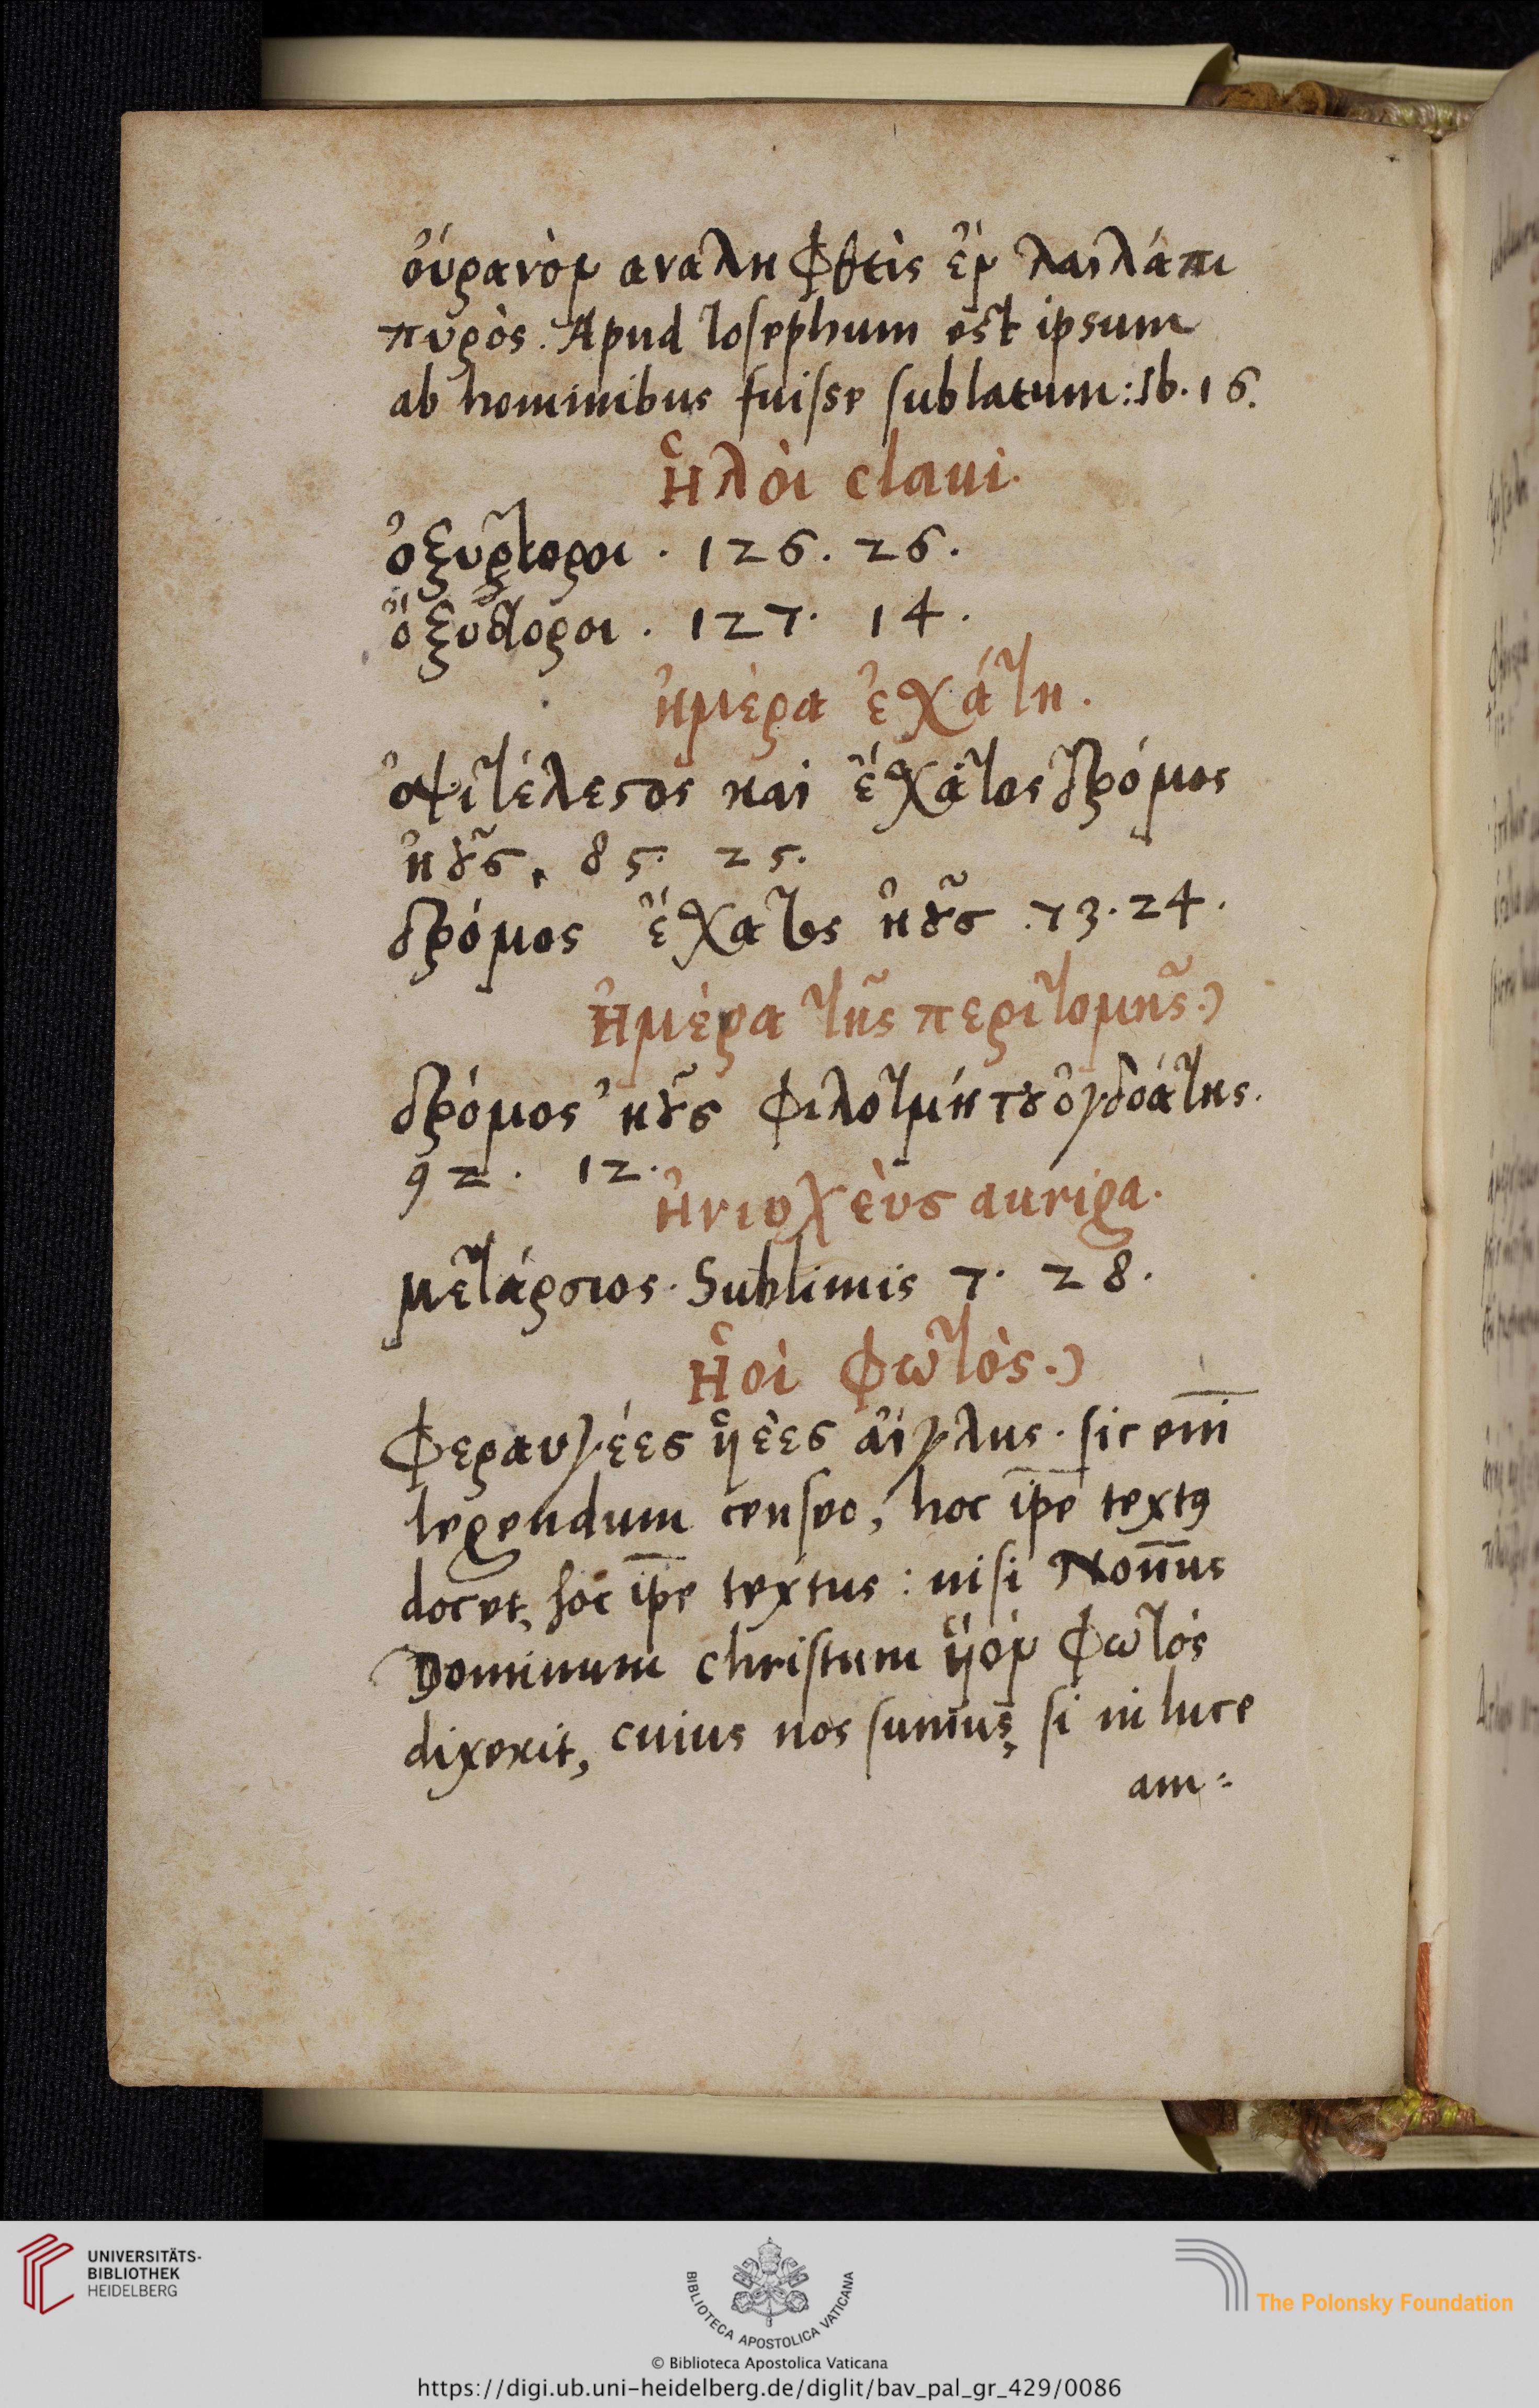 ὀυρανὸν αναληφθεὶς ἐν λαιλάπι
πυρὸς. Apud Iosephum est ipsum
ab hominibus fuisse sublatum: Ib. 16.
ἧλὸι claui.
ὀξυρτοροι. 126. 26.
ὀξυτοροι. 127. 14.
ἡμὲρα ἐχάτη.
ὀψιτέλεστος και ἔχατος δρόμος
ἠοῦς. 85. 25.
δρόμος ἔχατος ἠοῦς. 73. 24.
Ἡμὲρα τῆς περιτομῆς.
δρόμος ἠοῦς φιλοτμήτου ὀγδοάτης.
92. 12.
ἡνιοχεὺς auriga.
μετάρσιος. Sublimis 7. 28.
ἧοὶ φωτὸς.
φεραυγέες ὑέες αἴγλης. sic em̄
legendum censeo, hoc ip̄e textꝰ
docet, hoc ip̄e textus: nisi Non̄us
Dominum christum ὑὸν φωτός
dixerit, cuius nos sumus, si in luce
am=
UNIVERSITÄTS-
BIBLIOTHEK
HEIDELBERG
BIBLIOTECA APOSTOLICA VATICANA
© Biblioteca Apostolica Vaticana
The Polonsky Foundation
https://digi.ub.uni-heidelberg.de/diglit/bav_pal_gr_429/0086